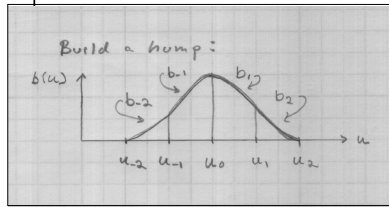 Build a hump:
b(u) b₋₂ b₋₁ b₁ b₂
u₋₂ u₋₁ u₀ u₁ u₂ u